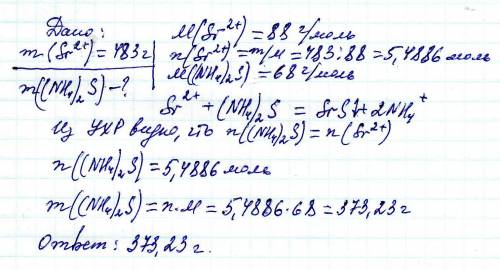 Дано:
m(Sr²⁺) = 483 г
m((NH₄)₂S) - ?
M(Sr²⁺) = 88 г/моль
n(Sr²⁺) = m/M = 483 : 88 = 5,4886 моль
M((NH₄)₂S) = 68 г/моль
Sr²⁺ + (NH₄)₂S = SrS↓ + 2NH₄⁺
Из УХР видно, что n((NH₄)₂S) = n(Sr²⁺)
n((NH₄)₂S) = 5,4886 моль
m((NH₄)₂S) = n·M = 5,4886·68 = 373,23 г
Ответ: 373,23 г.